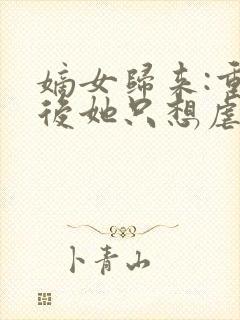 嫡女歸來:重
後她只想虐
卜青山